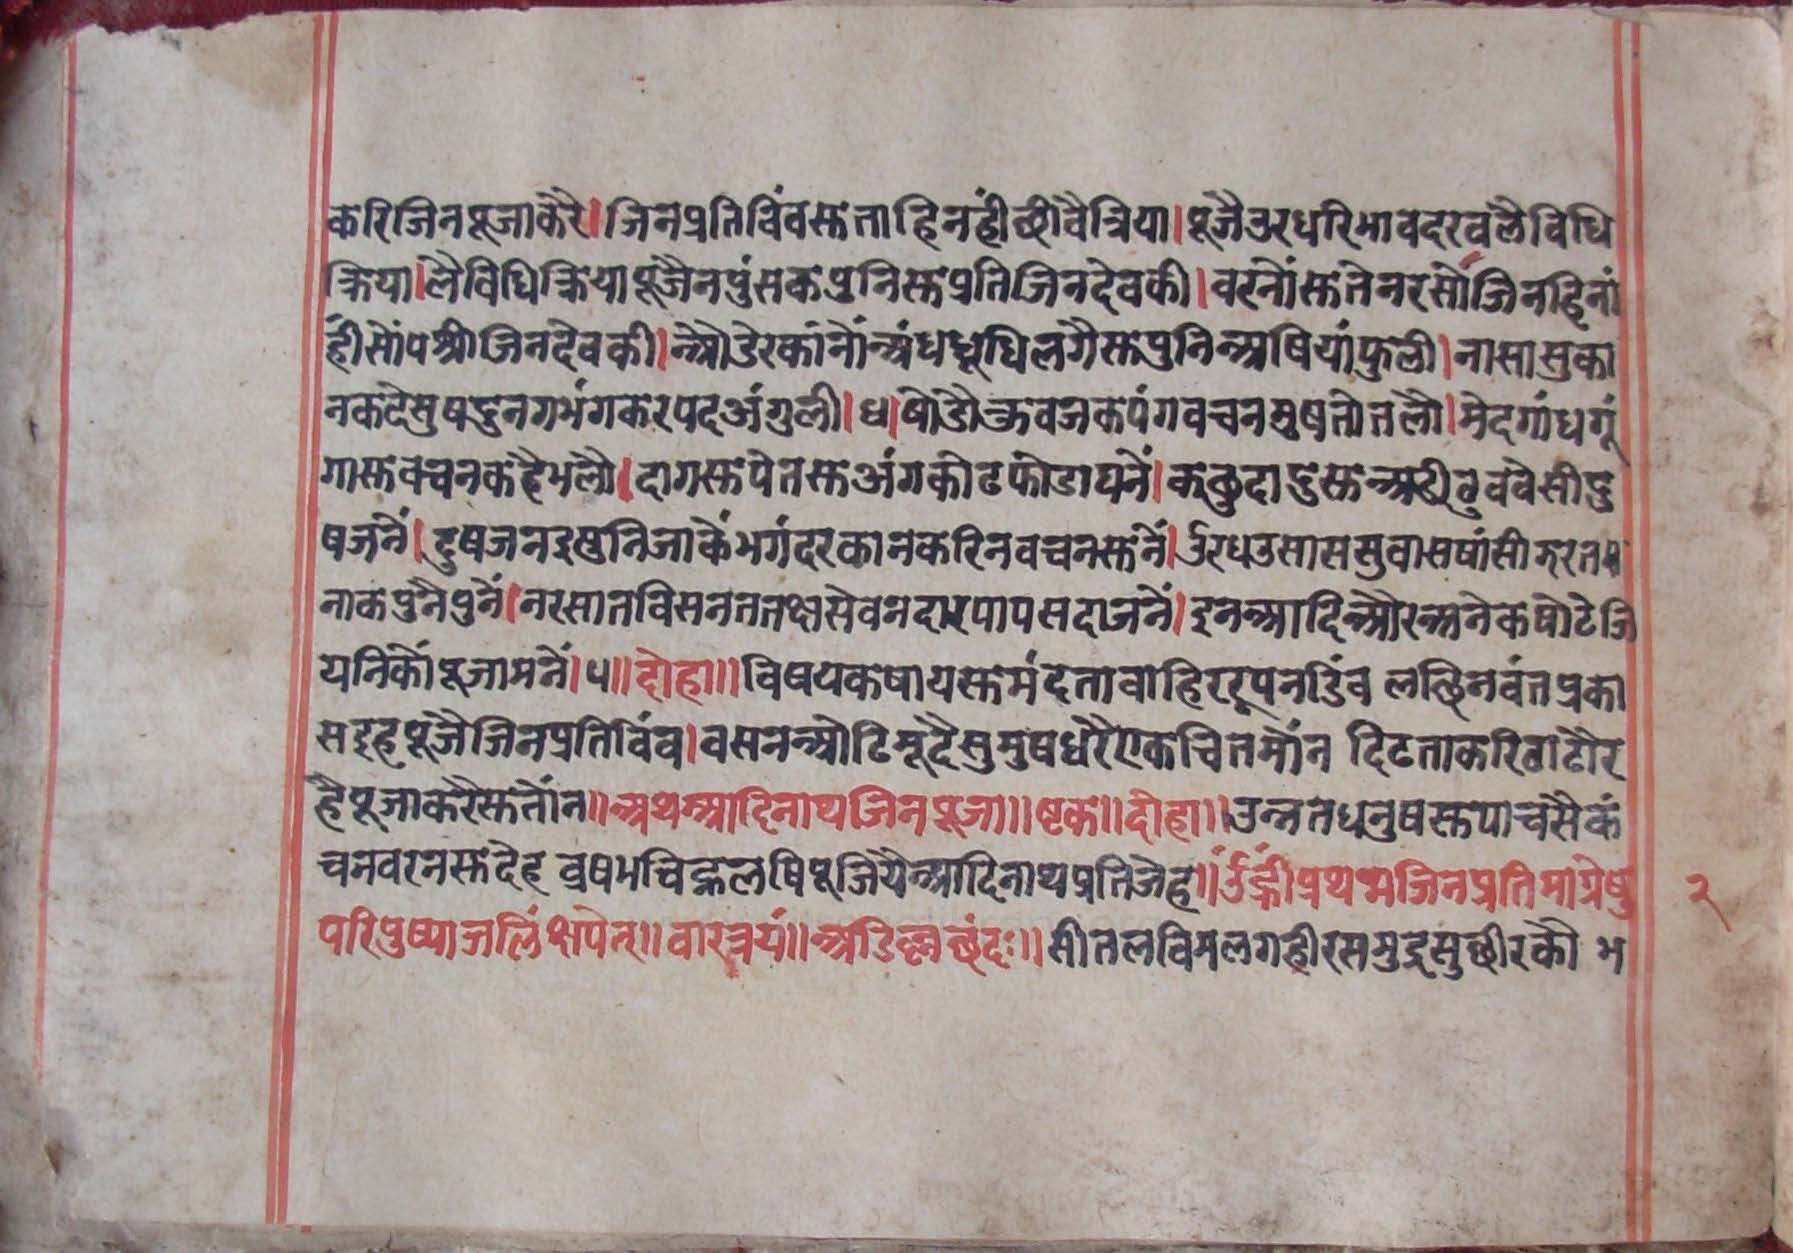 करिजिनपूजाकरै।जिनप्रतिविंवस्तताहिनहीछीवैत्रिया।पूजैउरधरिभावदरवलैविधि
क्रिया।लैविधिक्रियापूजैनपुंसकपुनिस्तप्रतिजिनदेवकी।वरनोंस्ततेनरसोंजिनहिनां
हीसोंपश्रीजिनदेवकी।औडेरकांनोंअंधधूधिलगैस्तपुनिअषियांफुली।नासासुका
नकटेमुषहुनगभंगकरपदअंगुली।४।षोडौकुवजकपंगवचनमुषतोतलौ।मेदगांधगूं
गास्तवचनकहैभलौ।दागस्तपेतस्तअंगकोढफोडाघनें।कछुदादुस्त ववैसीदु
षजनें।दुषजनइसुनिजाकेंभगंदरकानकरिनवचनस्तनें।उरधउसाससुवासषांसीझरत
नाकपुनैपुनें।नरसातविसनततक्षसेवनदारपापसदाजनें।इनआदिऔरअनेकषोटेजि
यनिकौंपूजामनें।५॥दोहा॥विषयकषायस्तमंदतावाहिररूपनडिंव लछिनवंतप्रका
सइहपूजैजिनप्रतिविंव।वसनओढिमूदैसुमुषधरैएकचितमोंन दिढताकरिठाढौर
हैपूजाकरैस्ततोंन॥अथआदिनाथजिनपूजा॥ष्टक॥दोहा॥उन्नतधनुषस्तपाचसैकं
चनवरनस्तदेह व्रषभचिह्नलषिपूजियैआदिनाथप्रतिजेह॥उंह्रींप्रथमजिनप्रतिमाग्रेषु
परिपुष्पाजलिंक्षपेत्॥वारत्रयं॥अडिल्लछंदः॥सीतलविमलगहीरसमुद्रसुछीरकौ भ
२